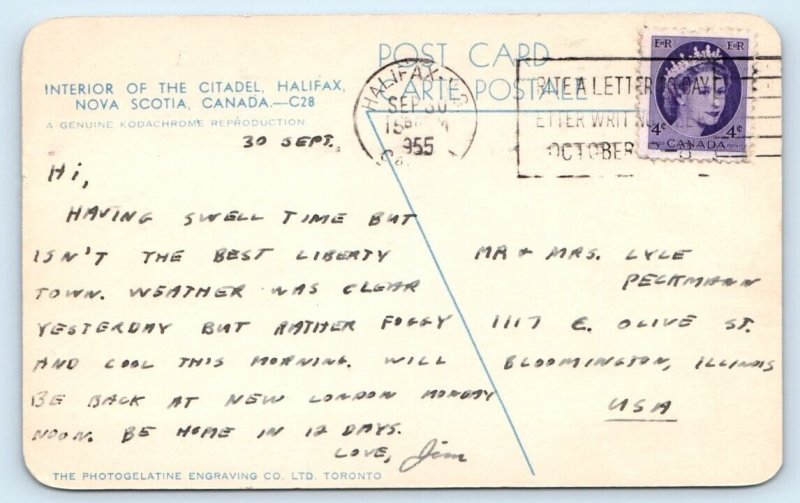 POST CARD
CARTE POSTALE
INTERIOR OF THE CITADEL, HALIFAX,
NOVA SCOTIA, CANADA.—C28
A GENUINE KODACHROME REPRODUCTION.
HALIFAX
SEP 30
1955
WRITE A LETTER TO
LETTER WRITING
OCTOBER
E R E R
4c 4c
CANADA
30 SEPT.
Hi,
HAVING SWELL TIME BUT
ISN'T THE BEST LIBERTY
TOWN. WEATHER WAS CLEAR
YESTERDAY BUT RATHER FOGGY
AND COOL THIS MORNING. WILL
BE BACK AT NEW LONDON MONDAY
NOON. BE HOME IN 12 DAYS.
LOVE, Jim
MR & MRS. LYLE
PECKMANN
1117 E. OLIVE ST.
BLOOMINGTON, ILLINOIS
USA
THE PHOTOGELATINE ENGRAVING CO. LTD. TORONTO